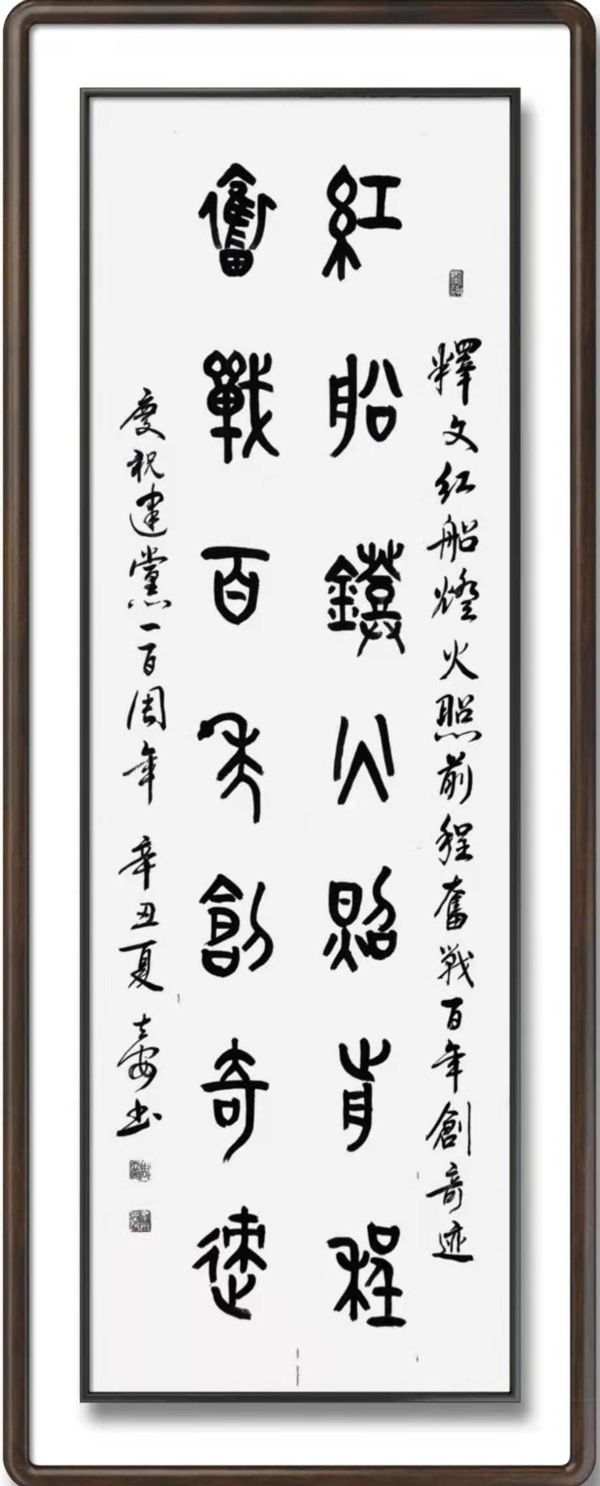 釋文红船燈火照前程奮戰百年創奇迹
紅船鐙火照前程
奮戰百年創奇迹
慶祝建黨一百周年 辛丑夏 書